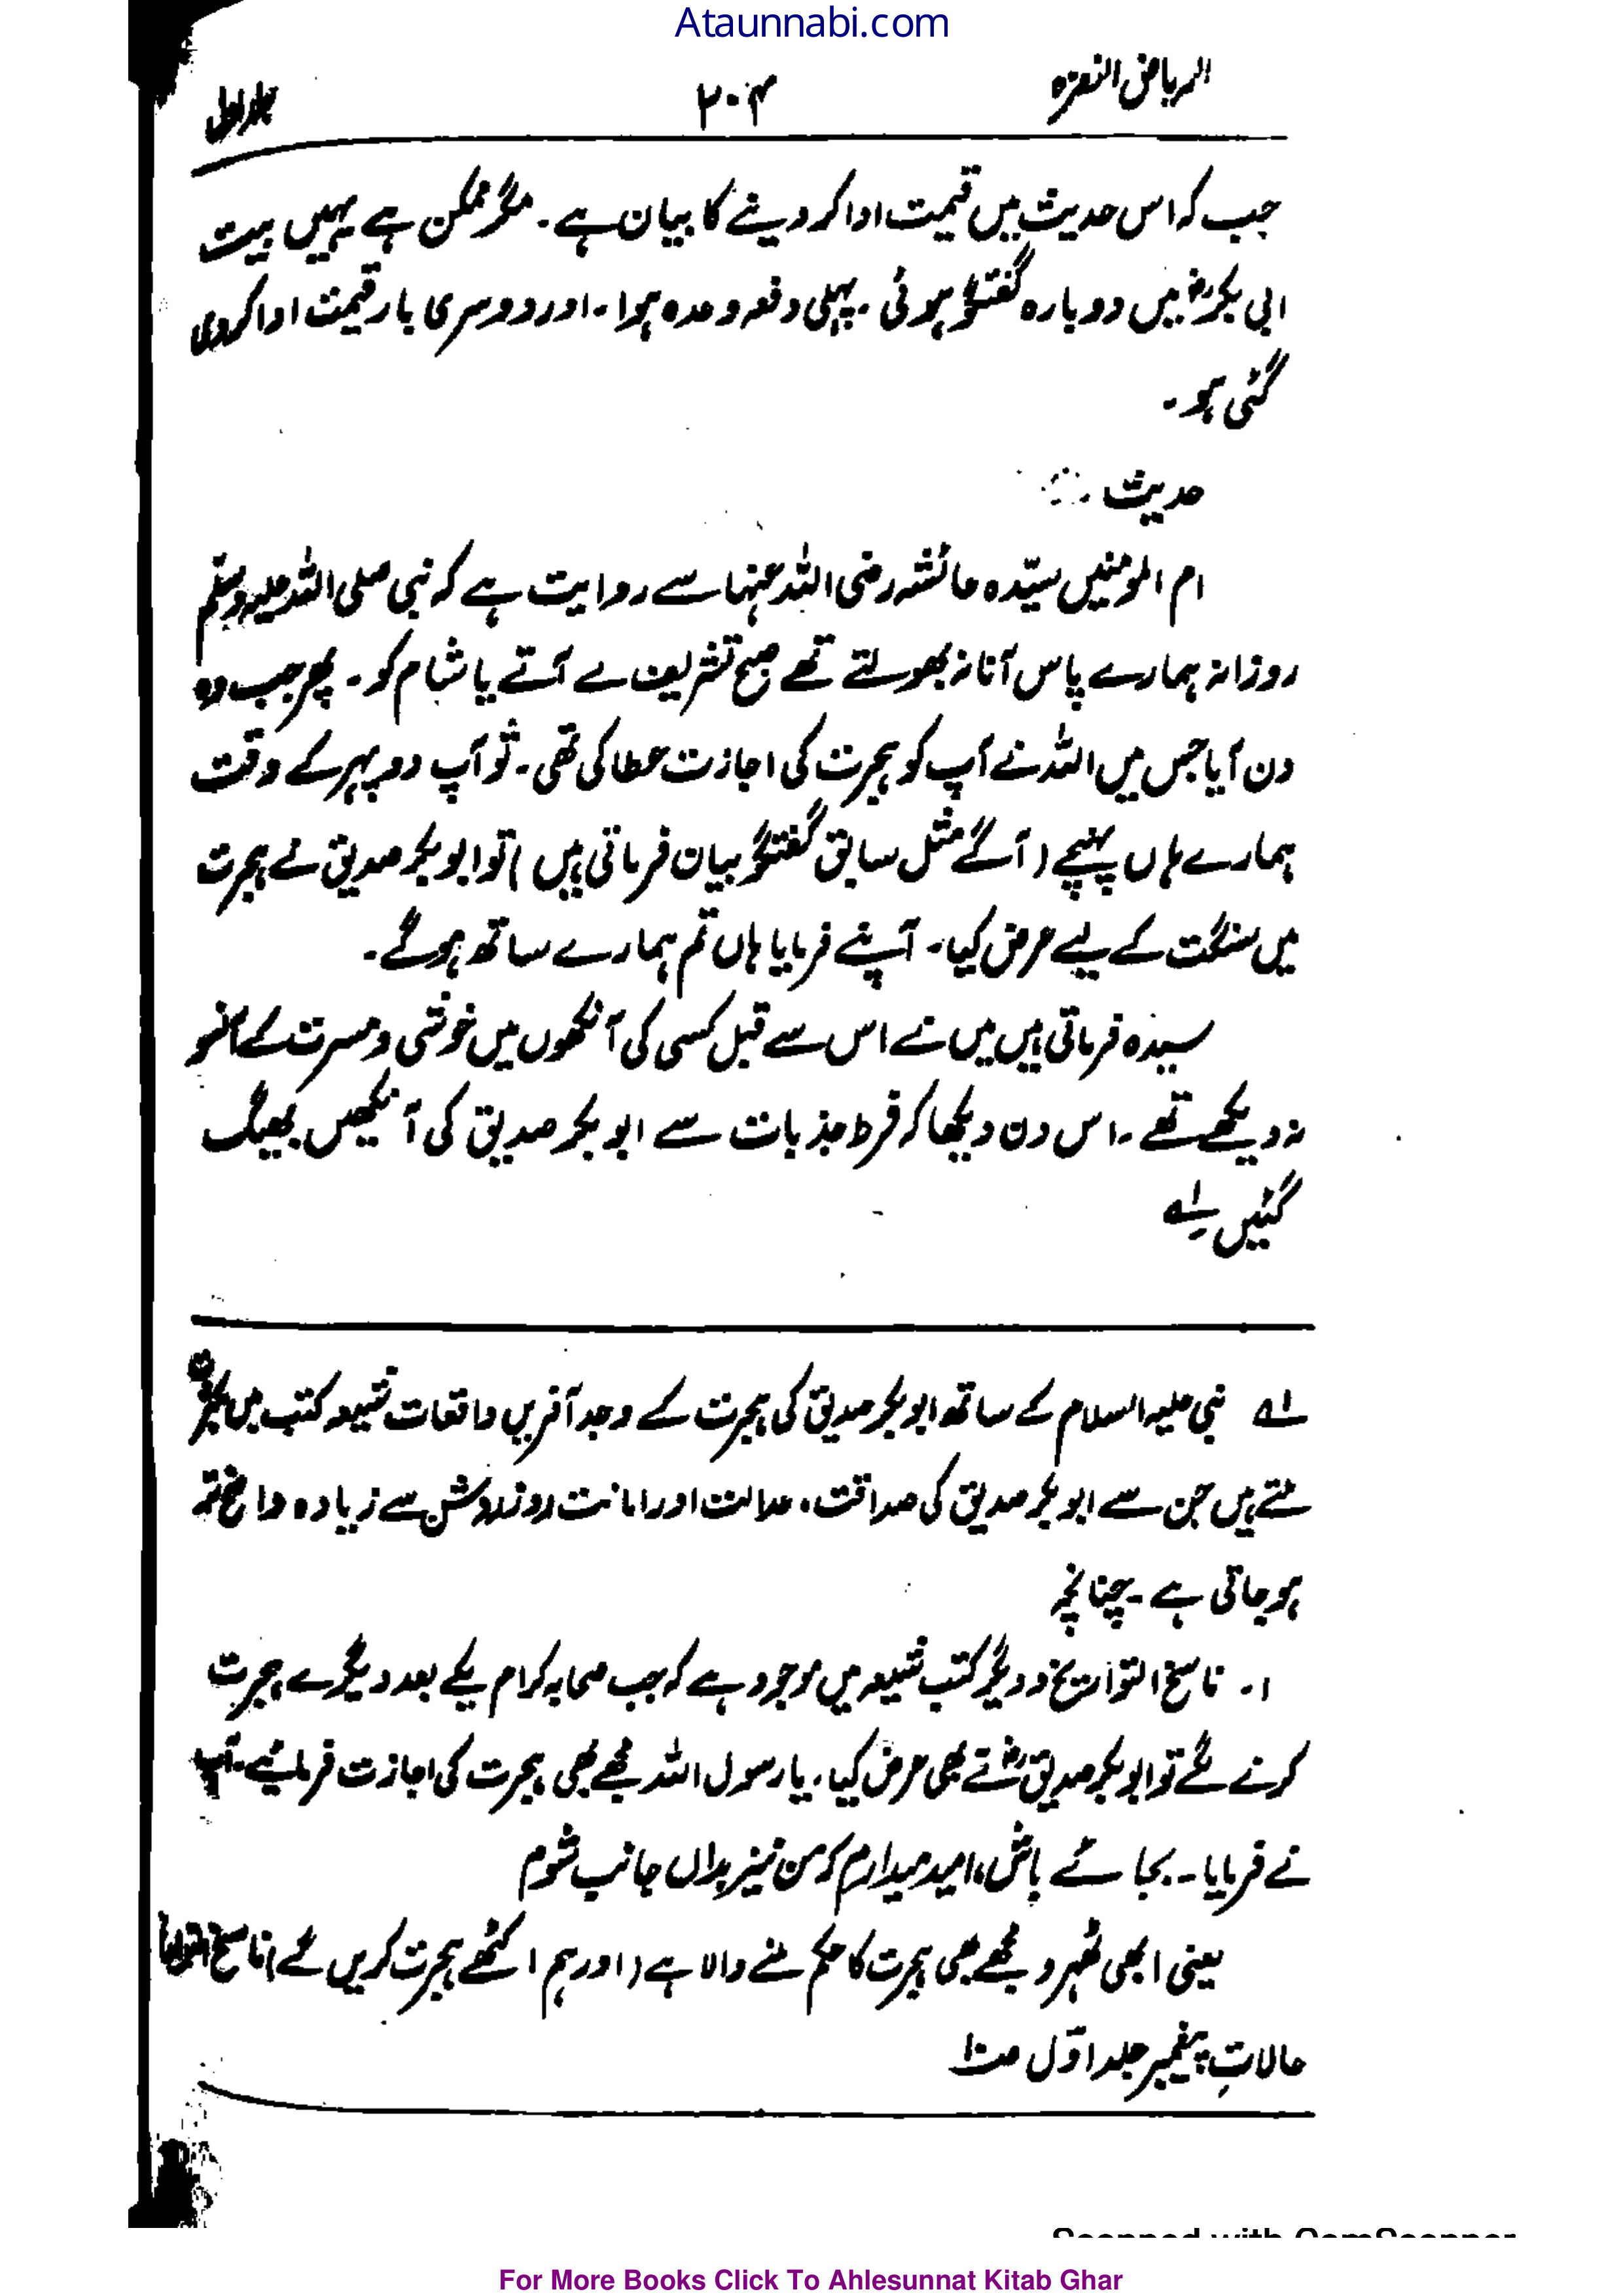 Ataunnabi.com
الریاض النضرہ ۲۰۴ جلد اول
جب کہ اس حدیث میں قیمت ادا کر دینے کا بیان ہے ۔ مگر ممکن ہے یہیں بیت
ابی بکرؓ میں دوبارہ گفتگو ہوئی ۔ پہلی دفعہ وعدہ ہوا ۔ اور دوسری بار قیمت ادا کر دی
گئی ہو ۔
حدیث
ام المومنین سیّدہ عائشہ رضی اللہ عنہا سے روایت ہے کہ نبی صلی اللہ علیہ وسلم
روزانہ ہمارے پاس آنا نہ بھولتے تھے صبح تشریف لے آتے یا شام کو ۔ پھر جب وہ
دن آیا جس میں اللہ نے آپ کو ہجرت کی اجازت عطا کی تھی ۔ تو آپ دوپہر کے وقت
ہمارے ہاں پہنچے ( آگے مثل سابق گفتگو بیان فرماتی ہیں ) تو ابو بکر صدیق نے ہجرت
میں سنگت کے لیے عرض کیا ۔ آپنے فرمایا ہاں تم ہمارے ساتھ ہوگے ۔
سیدہ فرماتی ہیں میں نے اس سے قبل کسی کی آنکھوں میں خوشی و مسرت کے آنسو
نہ دیکھے تھے ۔ اس دن دیکھا کہ فرط جذبات سے ابو بکر صدیق کی آنکھیں بھیگ
گئیں لے
لے نبی علیہ السلام کے ساتھ ابو بکر صدیق کی ہجرت کے وجد آفریں واقعات شیعہ کتب میں
ملتے ہیں جن سے ابو بکر صدیق کی صداقت ، عدالت اور امانت روز روشن سے زیادہ واضح تر
ہو جاتی ہے ۔ چنانچہ
۱ ۔ ناسخ التواریخ و دیگر کتب شیعہ میں موجود ہے کہ جب صحابہ کرام یکے بعد دیگرے ہجرت
کرنے لگے تو ابو بکر صدیقؓ نے بھی عرض کیا ، یا رسول اللہ مجھے بھی ہجرت کی اجازت فرمائیے ۔ آپ
نے فرمایا ۔ بجائے باش ، امید میدارم کہ من نیز بداں جانب شوم
یعنی ابھی ٹھہرو مجھے بھی ہجرت کا حکم ملنے والا ہے ( اور ہم اکٹھے ہجرت کریں گے ) ناسخ التواریخ
حالاتِ پیغمبر جلد اوّل
Scanned with CamScanner
For More Books Click To Ahlesunnat Kitab Ghar